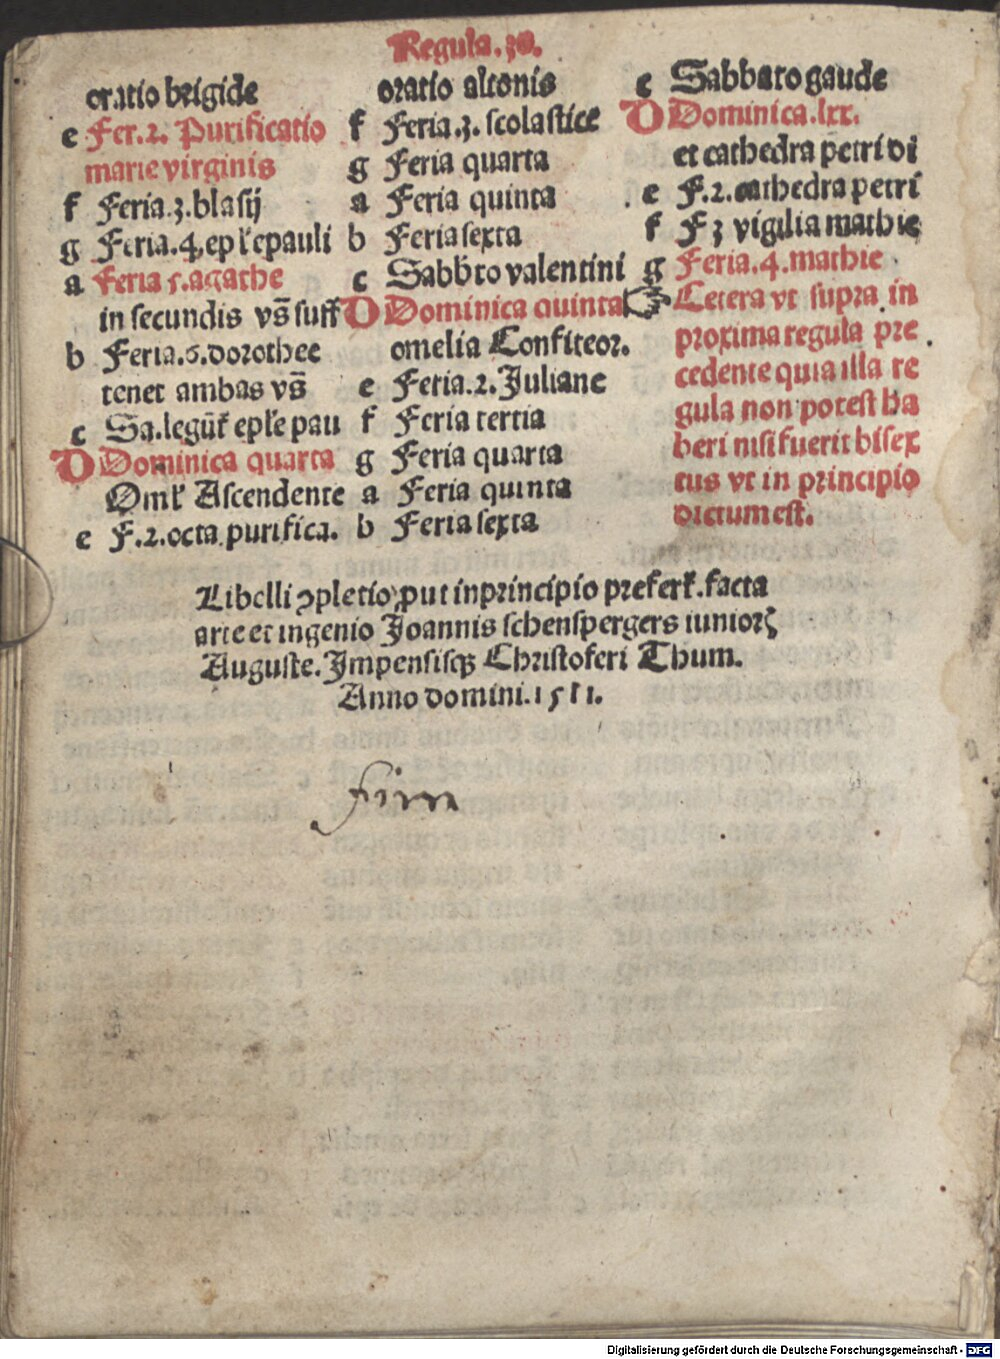 Regula.30.
oratio brigide
e Fer.2. Purificatio
marie virginis
f Feria.3.blasij
g Feria.4.epl'epauli
a feria 5.agathe
in secundis vs̄ suff
b Feria.6.dorothee
tenet ambas vs̄
c Sa.legūt' epl'e pau
D Dominica quarta
Oml' Ascendente
e F.2.octa.purifica.
oratio altonis
f Feria.3.scolastice
g Feria quarta
a Feria quinta
b Feria sexta
c Sabb'to valentini
D Dominica quinta
omelia Confiteor.
e Feria.2.Juliane
f Feria tertia
g Feria quarta
a Feria quinta
b Feria sexta
c Sabbato gaude
D Dominica.lxx.
et cathedra petri di
e F.2.cathedra petri
f F 3 vigilia mathie
g Feria.4.mathie
☞ Cetera vt supra in
proxima regula pre
cedente quia illa re
gula non potest ha
beri nisi fuerit bisex
tus vt in principio
dictum est.
Libelli ꝯpletio, put in principio prefert'.facta
arte et ingenio Joannis schenspergers iuniorꝭ
Auguste. Impensisqꝫ Christoferi Thum.
Anno domini.1511.
finn
Digitalisierung gefördert durch die Deutsche Forschungsgemeinschaft - DFG